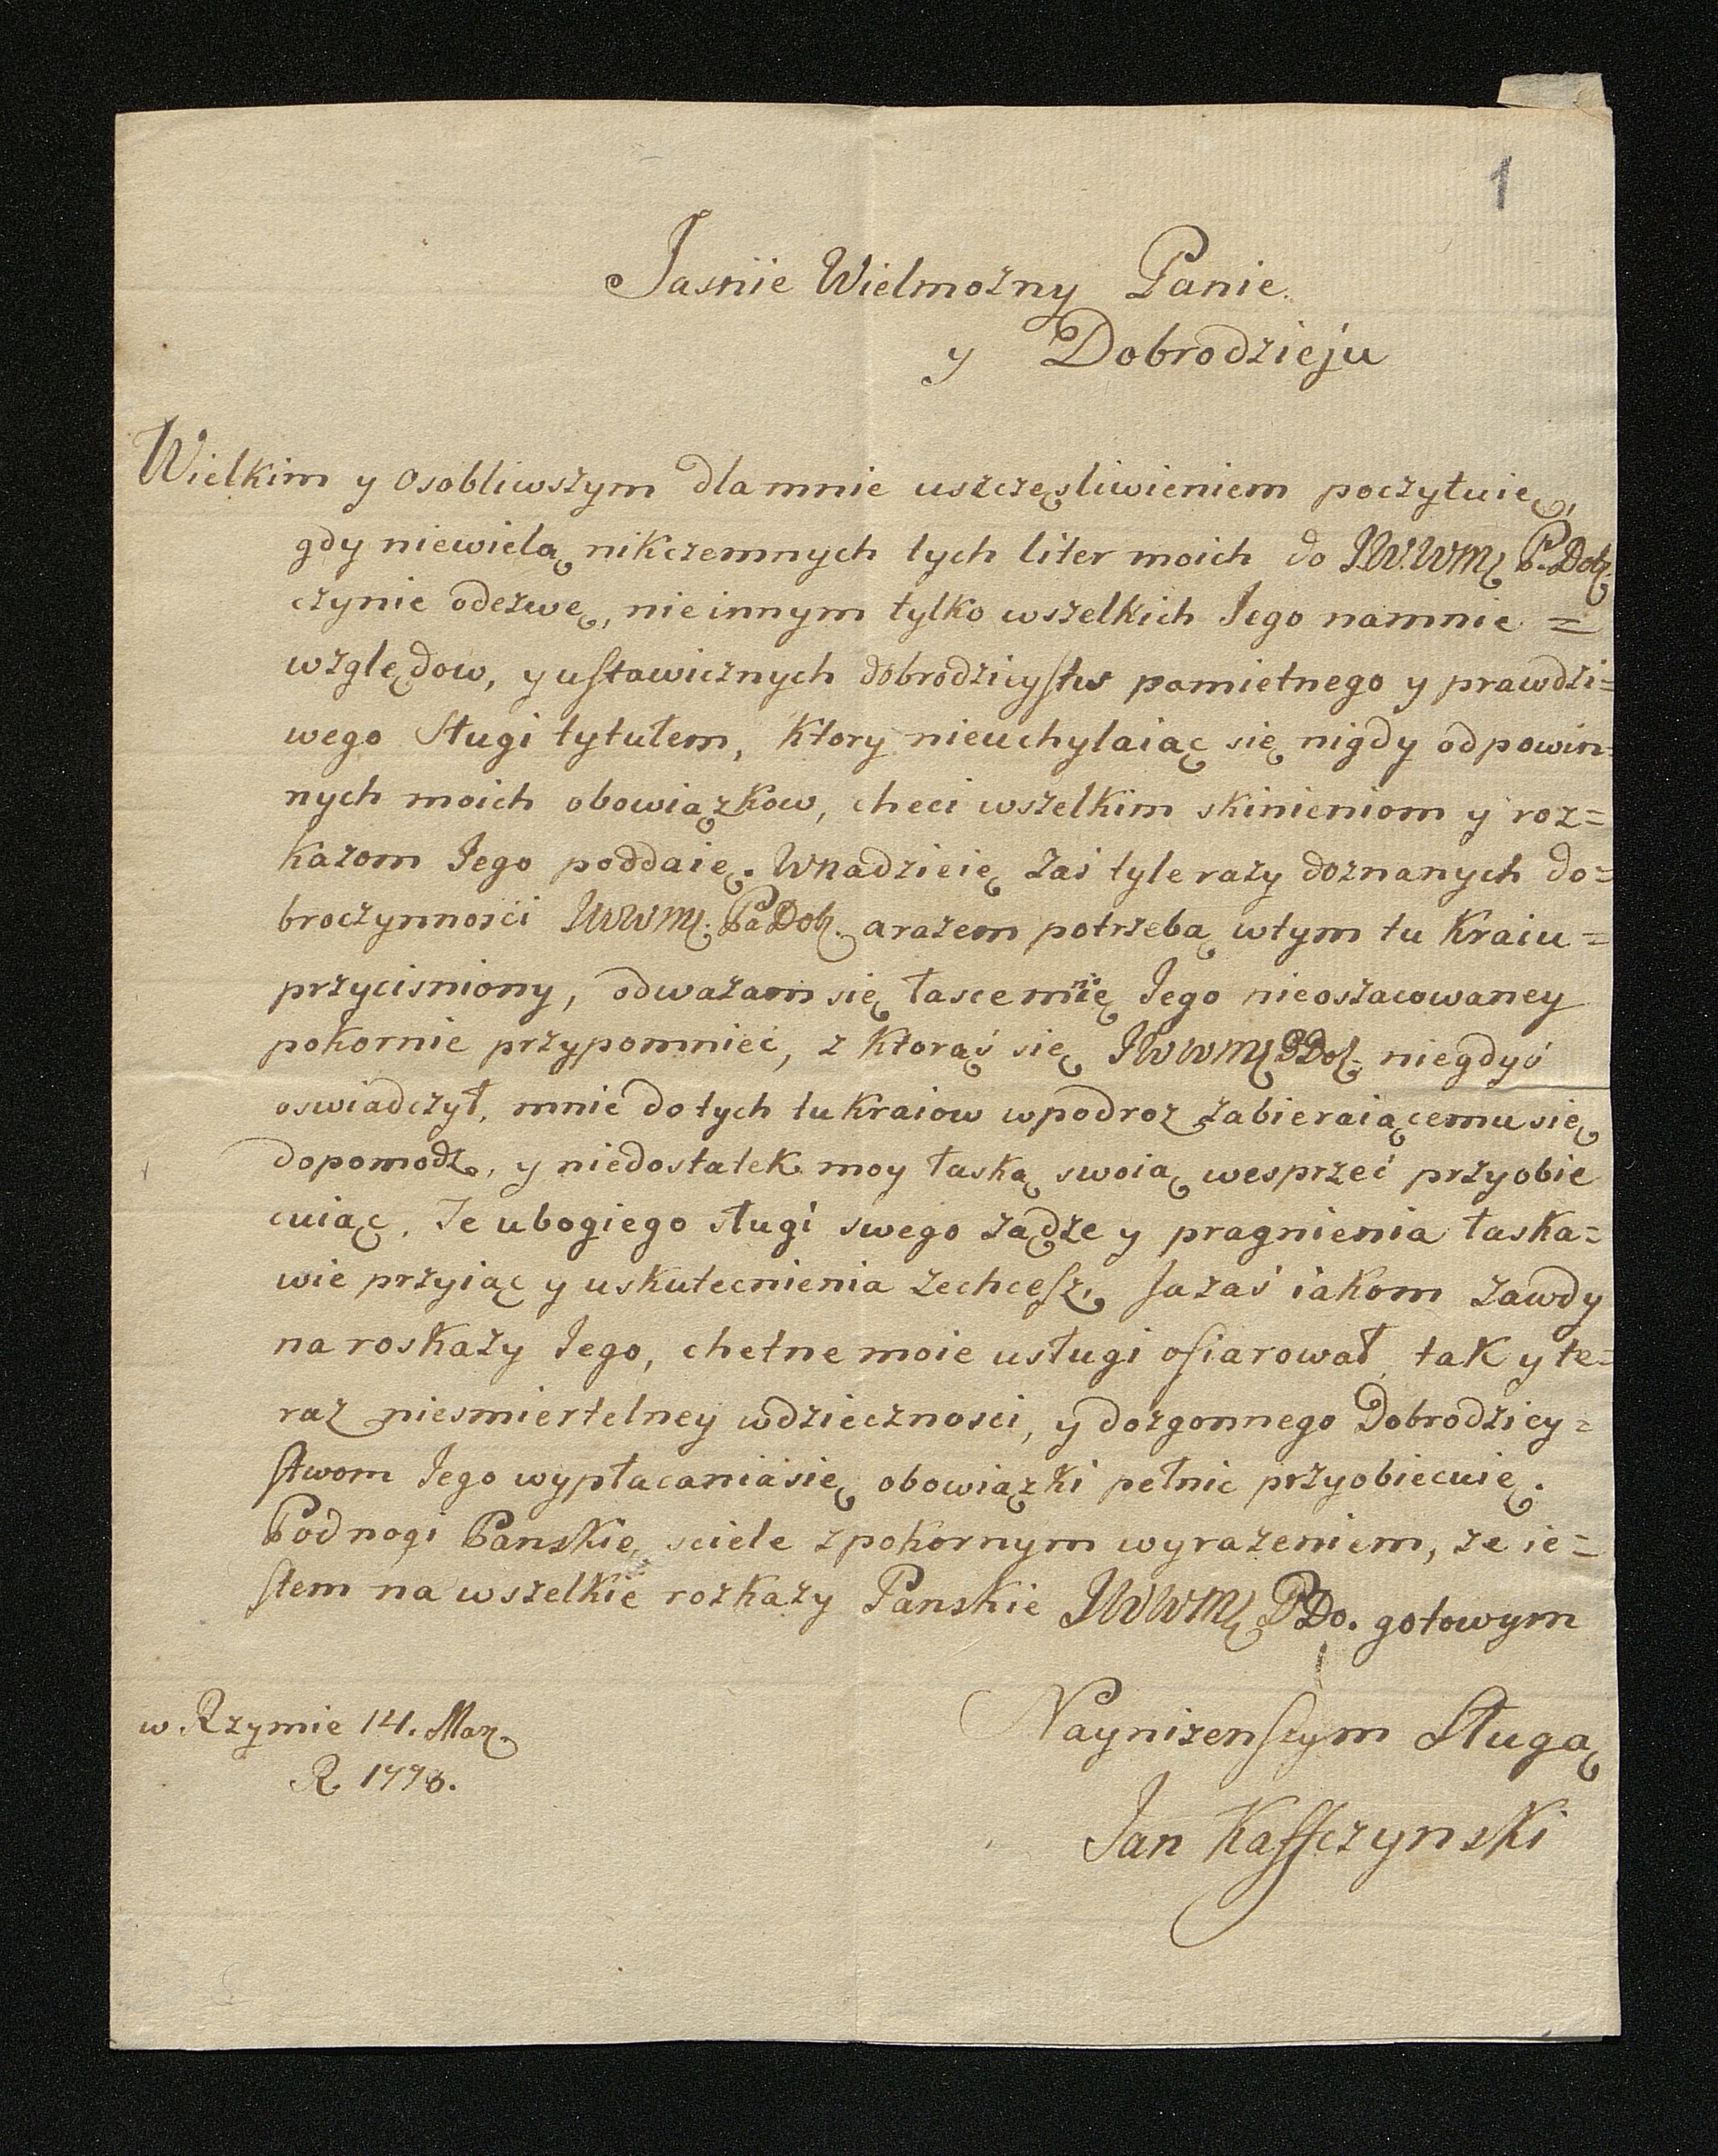 1
Jasnie Wielmozny Panie.
y Dobrodzieju
Wielkim y osobliwszym dla mnie uszczęsliwieniem poczytuię,
gdy niewielą nikczemnych tych liter moich do J.W.WMę P.Dob.
czynie odezwę, nie innym tylko wszelkich Jego namnie =
względow, y ustawicznych dobrodzieystw pamietnego y prawdzi=
wego Sługi tytułem, ktory nieuchylaiąc się nigdy odpowin=
nych moich obowiązkow, checi wszelkim skinieniom y roz=
kazom Jego poddaię. Wnadzieię zaś tyle razy doznanych do=
broczynnosci JWWMę. Pa Dob. arazem potrzebą wtym tu Kraiu =
przycisniony, odwazam się łasce mnię Jego nieoszacowaney
pokornie przypomnieć, z ktoraś się JWWMę PDob. niegdyś
oswiadczył, mnie do tych tu kraiow wpodroz zabieraiącemu się
dopomodz, y niedostatek moy łaską swoią wesprzeć przyobie
cuiąc. Te ubogiego sługi swego ządze y pragnienia łaska=
wie przyiąc y uskutecnienia zechcesz, Ja zaś iakom zawdy
na roskazy Jego, chetne moie usługi ofiarował, tak y te=
raz niesmiertelney wdziecznosci, y dozgonnego Dobrodziey=
stwom Jego wypłacania się obowiązki pełnic przyobiecuię.
Pod nogi Panskie sciele zpokornym wyrazeniem, ze ie=
stem na wszelkie rozkazy Panskie JWWMę PDo. gotowym
Nayniżenszym Sługą
w Rzymie 14. Mar.
R. 1778.
Jan Kaffczynski